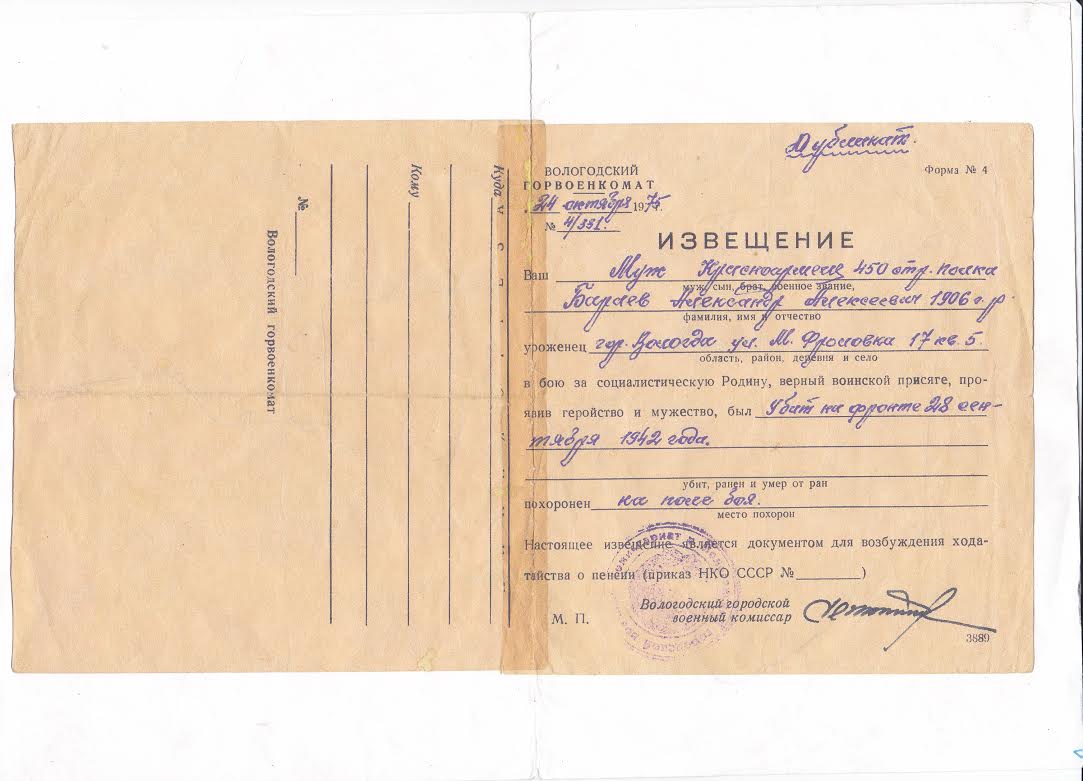 Дубликат.
Форма № 4
ВОЛОГОДСКИЙ
ГОРВОЕНКОМАТ
24 октября 1975 г.
№ 4/331.
ИЗВЕЩЕНИЕ
Ваш Муж Красноармеец 450 стр. полка
муж, сын, брат, военное звание,
Бараев Александр Алексеевич 1906 г.р.
фамилия, имя и отчество
уроженец гор. Вологда ул. М. Фроловка 17 кв. 5.
область, район, деревня и село
в бою за социалистическую Родину, верный воинской присяге, про-
явив геройство и мужество, был убит на фронте 28 сен-
тября 1942 года.
убит, ранен и умер от ран
похоронен на поле боя.
место похорон
Настоящее извещение является документом для возбуждения хода-
тайства о пенсии (приказ НКО СССР № )
Вологодский городской
М. П. военный комиссар
3889
Куда
Кому
№
Вологодский горвоенкомат